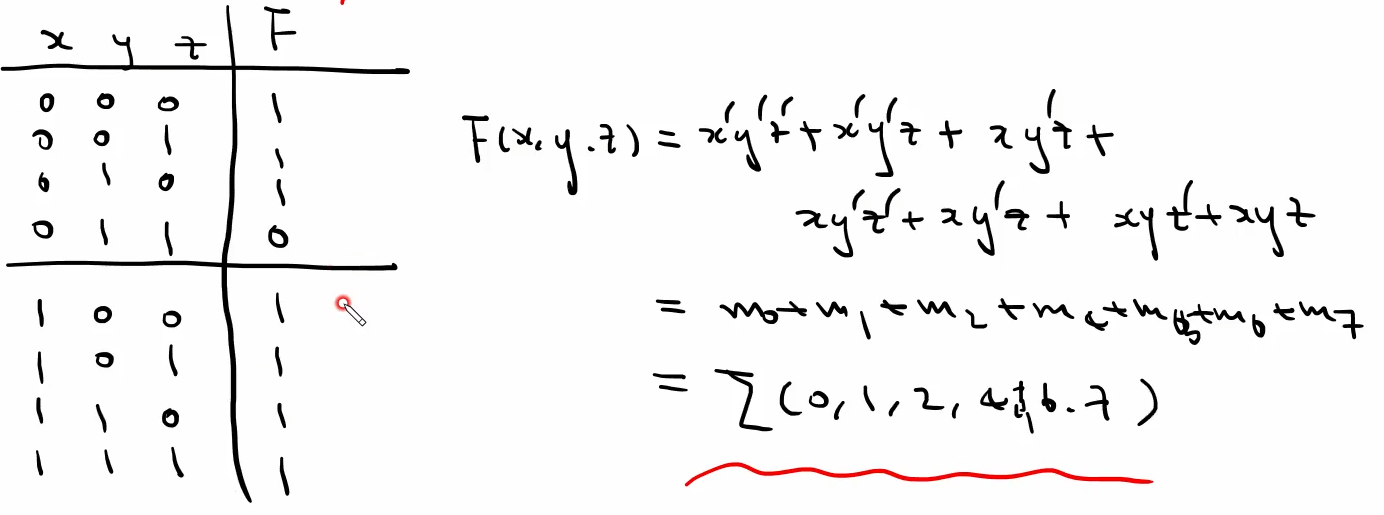 x y z F
0 0 0 1
0 0 1 1
0 1 0 1
0 1 1 0
1 0 0 1
1 0 1 1
1 1 0 1
1 1 1 1
F(x,y.z) = x'y'z' + x'y'z + xy'z +
xy'z' + xy'z + xyz' + xyz
= m0+m1+m2+m4+m5+m6+m7
= Σ(0,1,2,4,5,6.7)